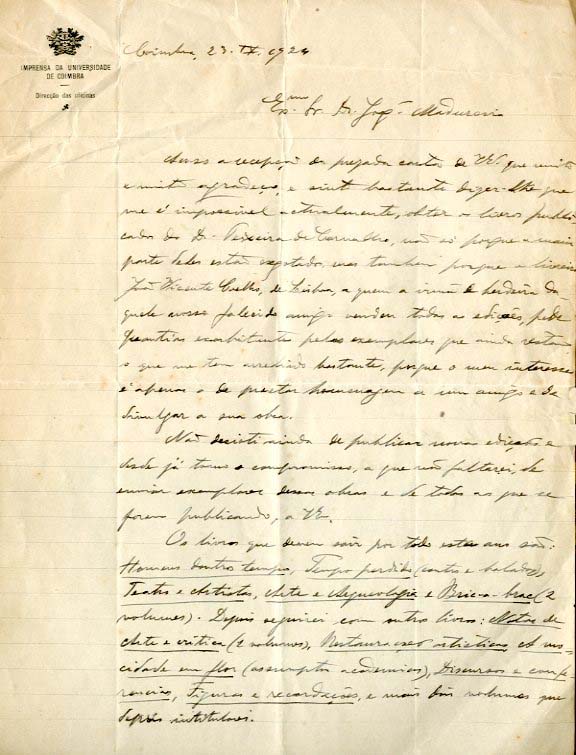 IMPRENSA DA UNIVERSIDADE
DE COIMBRA
Direcção das oficinas
Coimbra, 23. IX. 1924
Ex.mo Sr. Dr. José Madureira
Acuso a recepção da prezada carta de V.E. que muito
e muito agradeço, e sinto bastante dizer-lhe que
me é impossível actualmente, obter os livros publi-
cados do Dr. Teixeira de Carvalho, não só porque a maior
parte deles estão esgotados, mas também porque o livreiro
João Vicente Coelho, de Lisboa, a quem a irmã e herdeira da-
quele nosso falecido amigo vendeu todas as edições, pede
quantias exorbitantes pelos exemplares que ainda restam
o que me tem arreliado bastante, porque o meu interesse
é apenas o de prestar homenagem a um amigo e de
divulgar a sua obra.
Não desisti ainda de publicar nova edição e
desde já tomo o compromisso, a que não faltarei, de
enviar exemplares dessas obras e de todas as que se
forem publicando, a V.E.
Os livros que devem sair por todo este ano são:
Homens doutro tempo, Tempo perdido (contos e baladas),
Teatro e Artistas, Arte e Arqueologia e Bric-a-brac (2
volumes). Depois seguirei com outros livros: Notas de
Arte e crítica (2 volumes), Restaurações artísticas, A mo-
cidade em flor (assumptos academicos), Discursos e confe-
rencias, Figuras e recordações, e mais dois volumes que
depois intitularei.